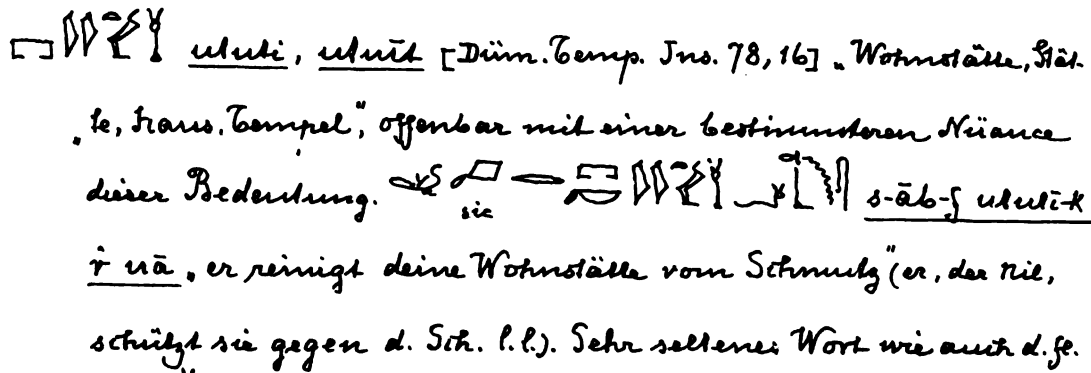 ututi, utuit [Düm. Temp. Ins. 78,16] „Wohnstätte, Stät-
„te, Haus, Tempel", offenbar mit einer bestimmteren Nüance
dieser Bedeutung. sic s-āb-f ututi-k
r uā „er reinigt deine Wohnstätte vom Schmutz" (er, der Nil,
schützt sie gegen d. Sch. l.l.). Sehr seltenes Wort wie auch d. fl.